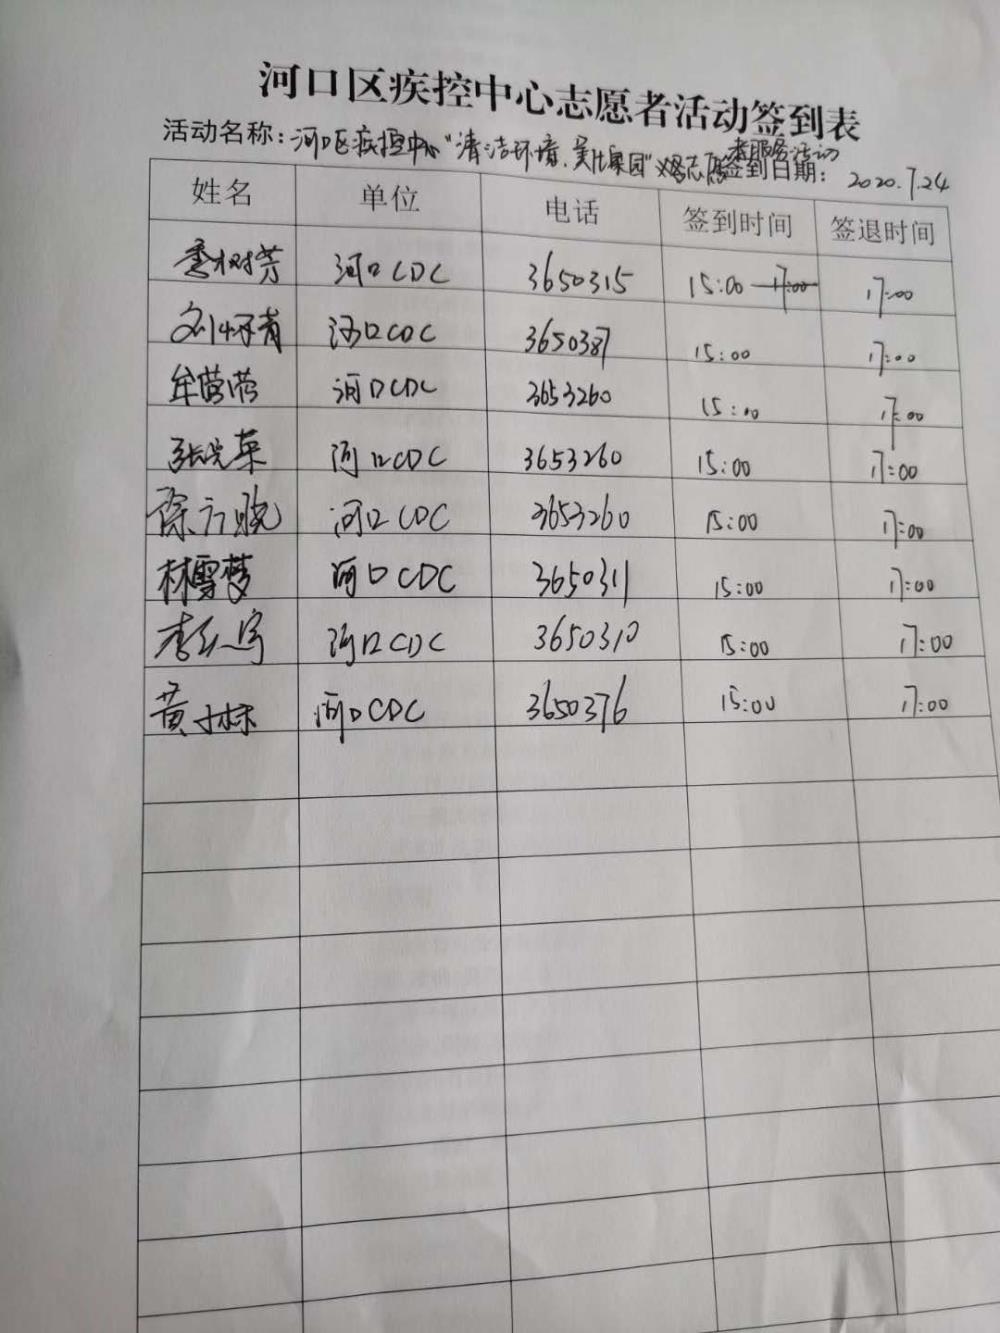 河口区疾控中心志愿者活动签到表
活动名称：河口区疾控中心"清洁环境、美化家园"志愿者服务活动 签到日期： 2020.7.24
姓名 单位 电话 签到时间 签退时间
李树芳 河口CDC 3650315 15:00 17:00 17:00
刘怀青 河口CDC 3650387 15:00 17:00
牟莹莹 河口CDC 3653260 15:00 17:00
张晓英 河口CDC 3653260 15:00 17:00
徐方晓 河口CDC 3653260 15:00 17:00
林雪梦 河口CDC 3650311 15:00 17:00
河口CDC 3650310 15:00 17:00
黄小林 河口CDC 3650376 15:00 17:00